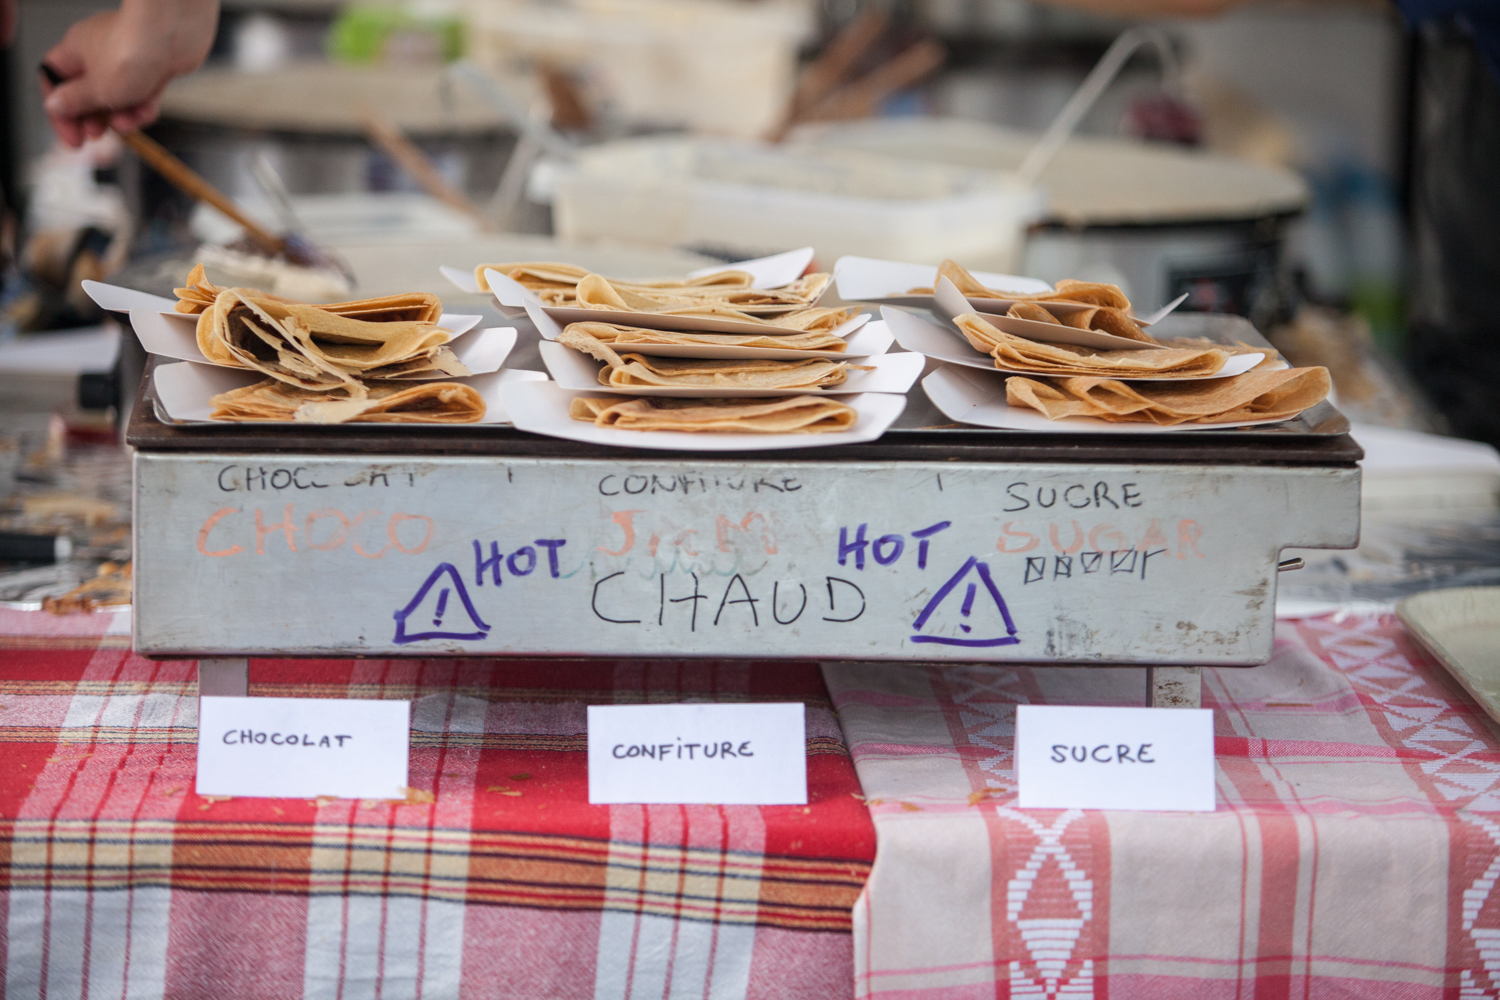 CHOCOLAT
CONFITURE
SUCRE
CHOCO
JAM
SUGAR
HOT
HOT
!
CHAUD
!
CHOCOLAT
CONFITURE
SUCRE